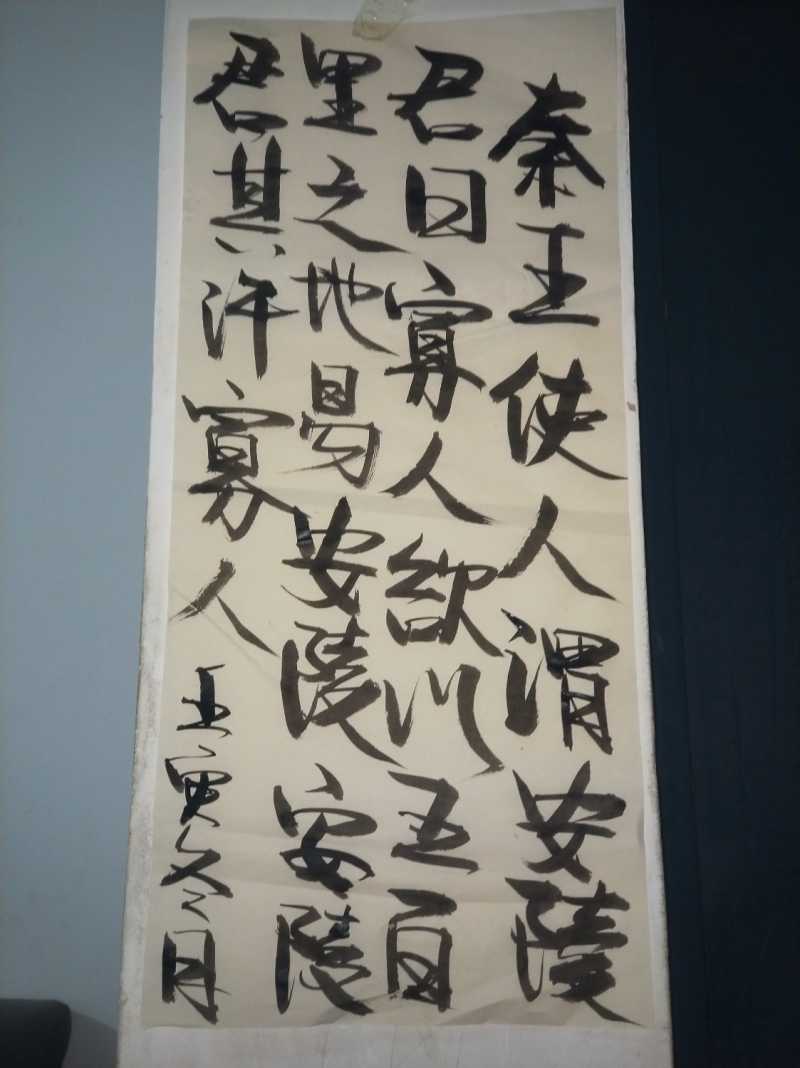 秦王使人谓安陵
君曰寡人欲以五百
里之地易安陵安陵
君其许寡人
壬寅冬月